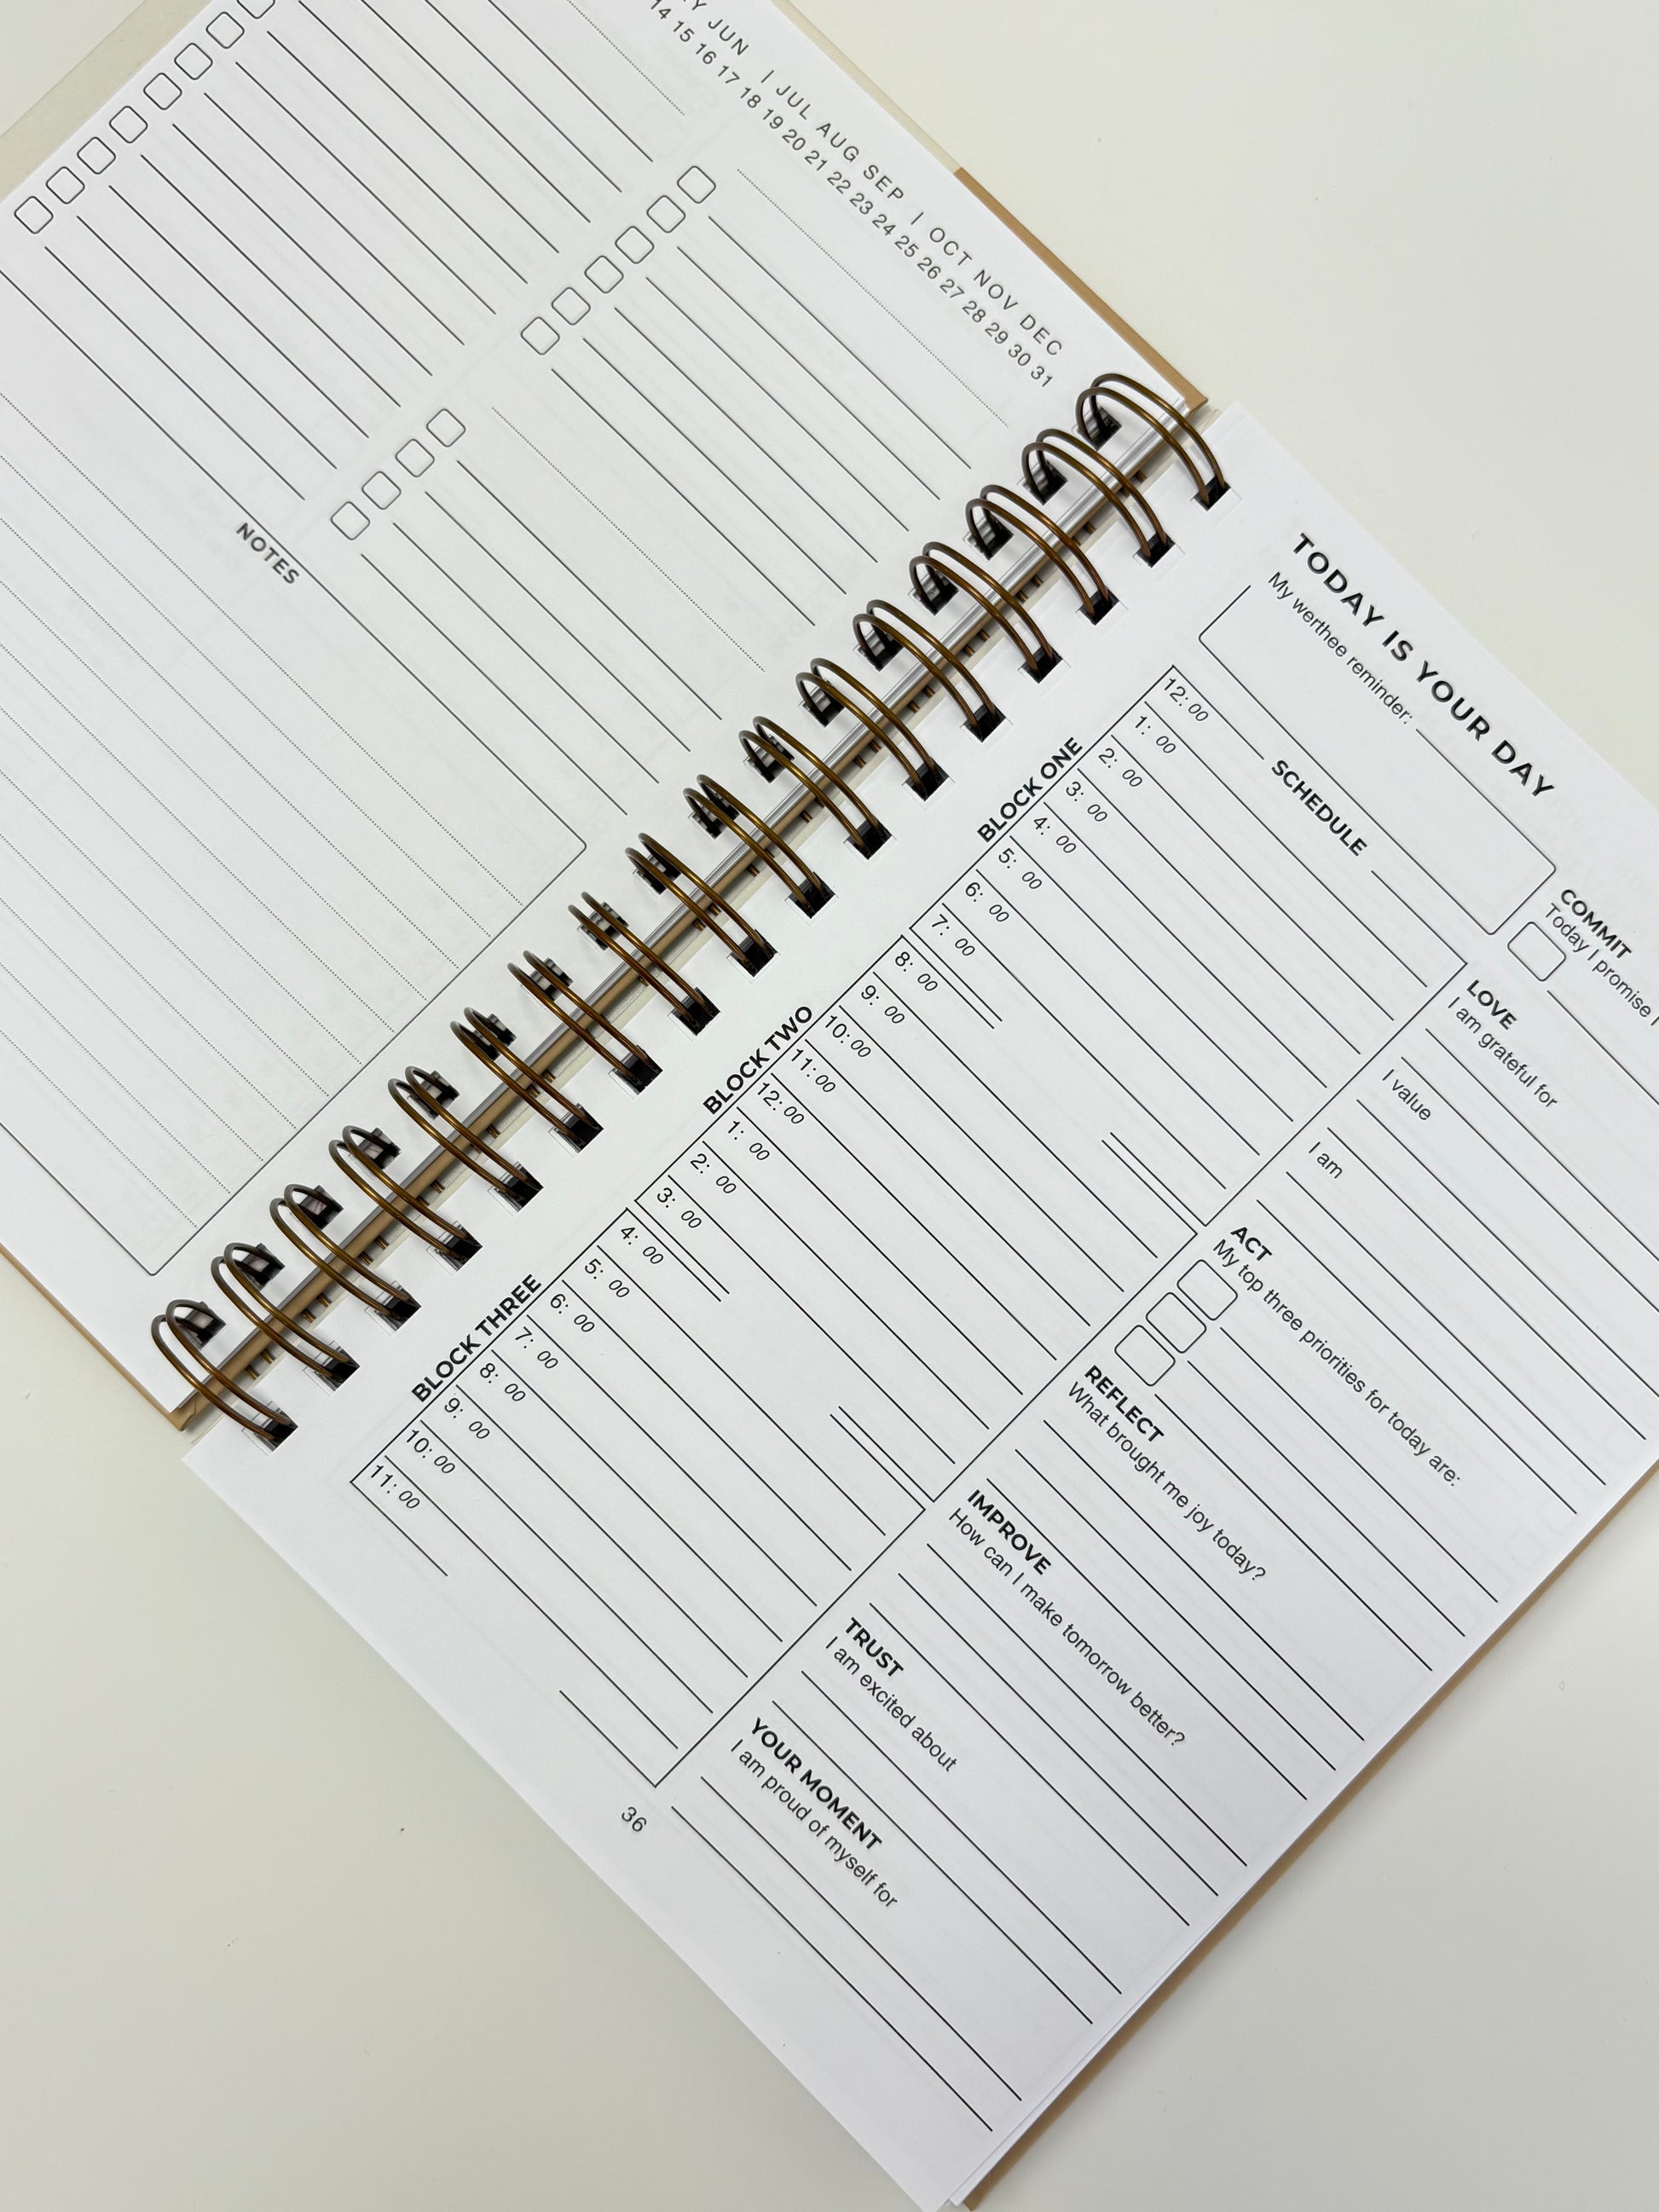 JUN | JUL AUG SEP | OCT NOV DEC
14 15 16 17 18 19 20 21 22 23 24 25 26 27 28 29 30 31
NOTES
TODAY IS YOUR DAY
My werthee reminder:
SCHEDULE
BLOCK ONE
12:00
1:00
2:00
3:00
4:00
5:00
6:00
7:00
BLOCK TWO
8:00
9:00
10:00
11:00
12:00
1:00
2:00
3:00
BLOCK THREE
4:00
5:00
6:00
7:00
8:00
9:00
10:00
11:00
COMMIT
Today I promise
LOVE
I am grateful for
I value
I am
ACT
My top three priorities for today are:
REFLECT
What brought me joy today?
IMPROVE
How can I make tomorrow better?
TRUST
I am excited about
YOUR MOMENT
I am proud of myself for
36